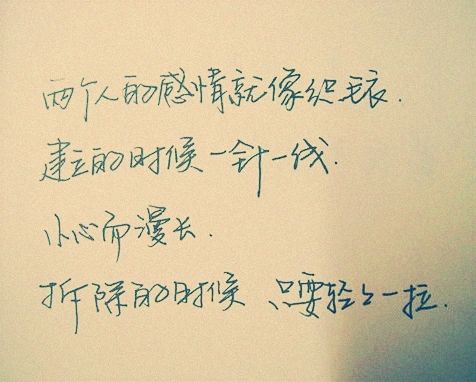 两个人的感情就像织毛衣.
建立的时候一针一线.
小心而漫长.
拆除的时候 只要轻轻一拉.